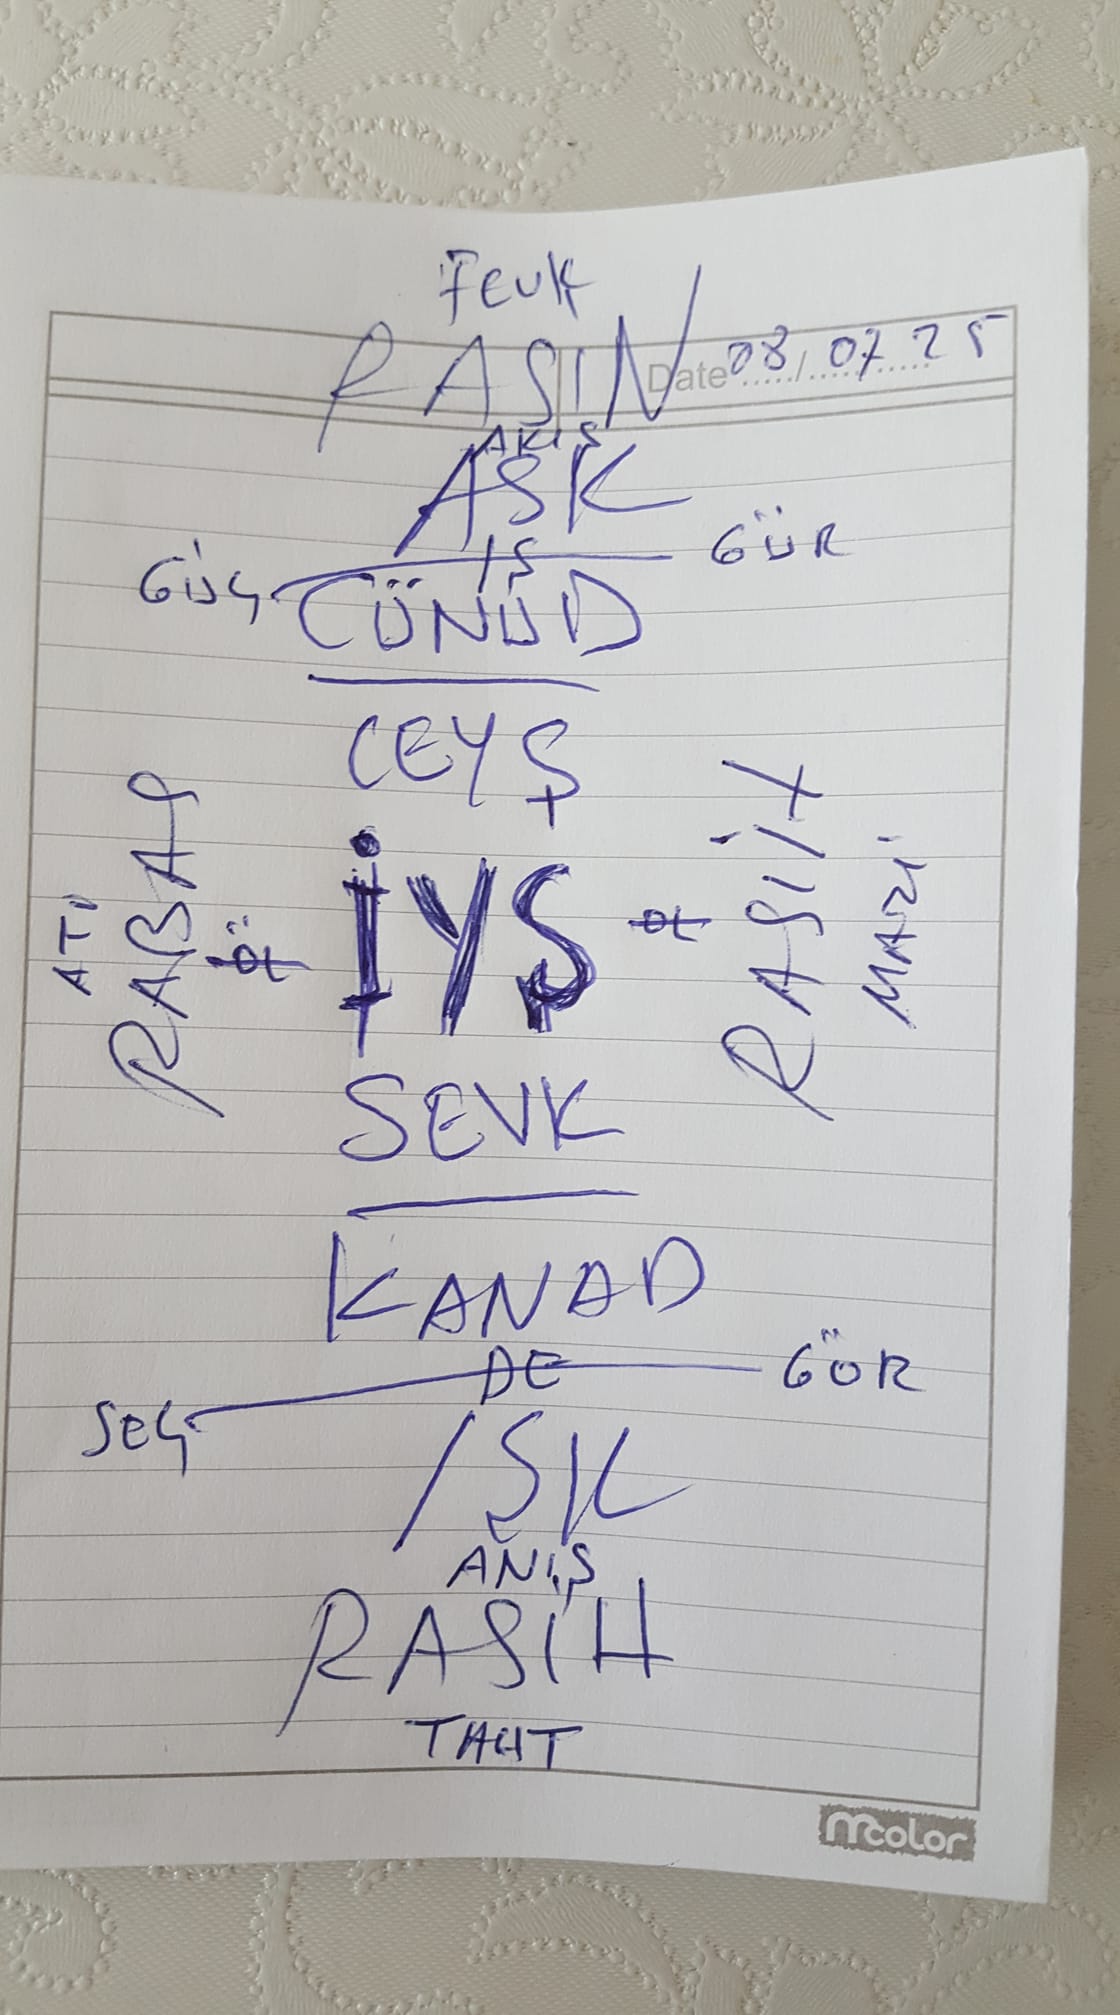 FEVK
RASIN
Date 08/07.25
AKIŞ
ASK
IŞ
GÜR
GÜÇ
CÜNÜD
CEYŞ
ATİ
RABAP
öt
İYŞ
öt
RASİX
MAZİ
SEVK
KANAD
DE
GÖR
SEÇ
ISK
ANIŞ
RASİH
TAHT
mcolor